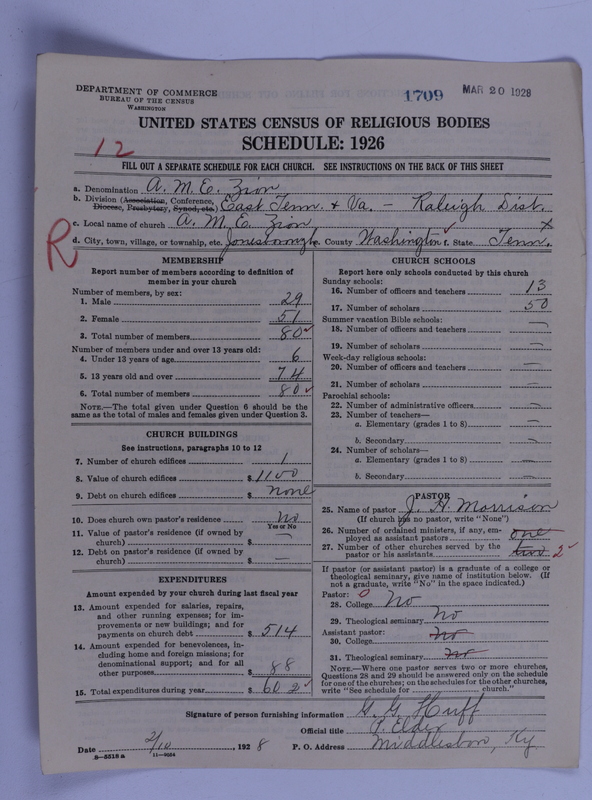 DEPARTMENT OF COMMERCE
BUREAU OF THE CENSUS
WASHINGTON
1709
MAR 20 1928
UNITED STATES CENSUS OF RELIGIOUS BODIES
SCHEDULE: 1926
12
FILL OUT A SEPARATE SCHEDULE FOR EACH CHURCH. SEE INSTRUCTIONS ON THE BACK OF THIS SHEET
a. Denomination A. M. E. Zion
b. Division (Association, Conference, Diocese, Presbytery, Synod, etc.) East Tenn. & Va. - Raleigh Dist.
c. Local name of church A. M. E. Zion
R
d. City, town, village, or township, etc. Jonesborough e. County Washington f. State Tenn.
MEMBERSHIP
Report number of members according to definition of
member in your church
Number of members, by sex:
1. Male 29
2. Female 51
3. Total number of members 80
Number of members under and over 13 years old:
4. Under 13 years of age 6
5. 13 years old and over 74
6. Total number of members 80
NOTE.—The total given under Question 6 should be the
same as the total of males and females given under Question 3.
CHURCH BUILDINGS
See instructions, paragraphs 10 to 12
7. Number of church edifices 1
8. Value of church edifices $ 1100
9. Debt on church edifices $ none
10. Does church own pastor's residence No
Yes or No
11. Value of pastor's residence (if owned by
church) $ —
12. Debt on pastor's residence (if owned by
church) $ —
EXPENDITURES
Amount expended by your church during last fiscal year
13. Amount expended for salaries, repairs,
and other running expenses; for im-
provements or new buildings; and for
payments on church debt $ 514
14. Amount expended for benevolences, in-
cluding home and foreign missions; for
denominational support; and for all
other purposes $ 88
15. Total expenditures during year $ 602
CHURCH SCHOOLS
Report here only schools conducted by this church
Sunday schools:
16. Number of officers and teachers 13
17. Number of scholars 50
Summer vacation Bible schools:
18. Number of officers and teachers —
19. Number of scholars —
Week-day religious schools:
20. Number of officers and teachers —
21. Number of scholars —
Parochial schools:
22. Number of administrative officers —
23. Number of teachers—
a. Elementary (grades 1 to 8) —
b. Secondary —
24. Number of scholars—
a. Elementary (grades 1 to 8) —
b. Secondary —
PASTOR
25. Name of pastor J. H. Morrison
(If church has no pastor, write "None")
26. Number of ordained ministers, if any, em-
ployed as assistant pastors one
27. Number of other churches served by the
pastor or his assistants two 2
If pastor (or assistant pastor) is a graduate of a college or
theological seminary, give name of institution below. (If
not a graduate, write "No" in the space indicated.)
Pastor: 0
28. College No
29. Theological seminary No
Assistant pastor:
30. College No
31. Theological seminary No
NOTE.—Where one pastor serves two or more churches,
Questions 28 and 29 should be answered only on the schedule
for one of the churches; on the schedules for the other churches,
write "See schedule for church."
Signature of person furnishing information G. G. Huff
Official title P. Elder
Date 2/10, 1928 P. O. Address Middlesboro, Ky.
8-5518 a 11-9054